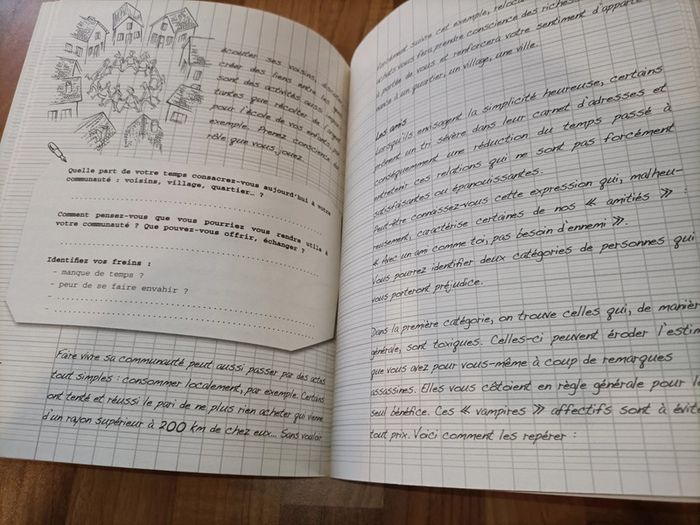 écouter ses voisins,
créer des liens entre les
sont des activités aussi
tantes que récolter de l'argent
pour l'école de vos enfants, par
exemple. Prenez conscience du
rôle que vous jouez.
Quelle part de votre temps consacrez-vous aujourd'hui à votre
communauté : voisins, village, quartier… ?
Comment pensez-vous que vous pourriez vous rendre utile à
votre communauté ? Que pouvez-vous offrir, échanger ?
Identifiez vos freins :
- manque de temps ?
- peur de se faire envahir ?
-
-
Faire vivre sa communauté peut aussi passer par des actes
tout simples : consommer localement, par exemple. Certains
ont tenté et réussi le pari de ne plus rien acheter qui vienne
d'un rayon supérieur à 200 km de chez eux… Sans vouloir
forcément suivre cet exemple,
achats vous fera prendre conscience des
à portée de vous et renforcera votre sentiment d'apparte-
nance à un quartier, un village, une ville.
Les amis
Lorsqu'ils envisagent la simplicité heureuse, certains
prônent un tri sévère dans leur carnet d'adresses et
conséquemment une réduction du temps passé à
entretenir ces relations qui ne sont pas forcément
satisfaisantes ou épanouissantes.
Peut-être connaissez-vous cette expression qui, malheu-
reusement, caractérise certaines de nos « amitiés » :
« Avec un ami comme toi, pas besoin d'ennemi ».
Vous pourrez identifier deux catégories de personnes qui
vous porteront préjudice.
Dans la première catégorie, on trouve celles qui, de manière
générale, sont toxiques. Celles-ci peuvent éroder l'estime
que vous avez pour vous-même à coup de remarques
assassines. Elles vous côtoient en règle générale pour
seul bénéfice. Ces « vampires » affectifs sont à
tout prix. Voici comment les repérer :